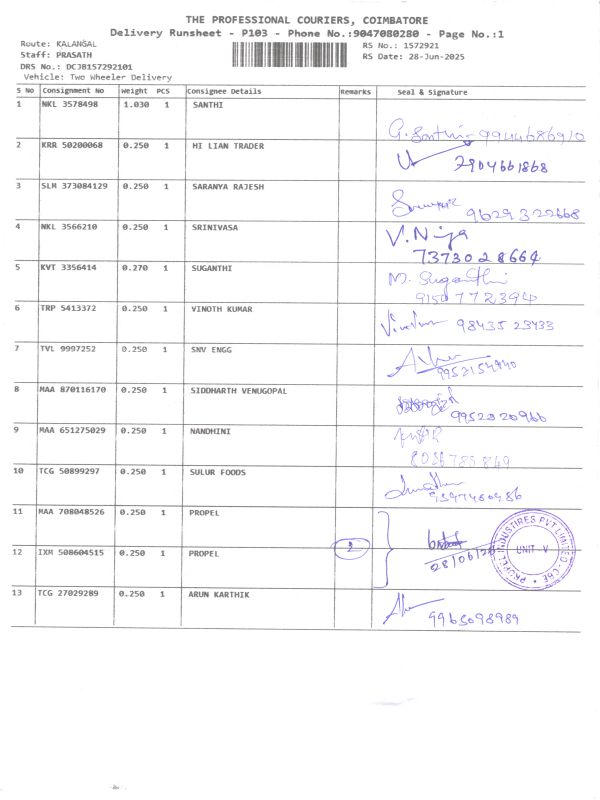 THE PROFESSIONAL COURIERS, COIMBATORE
Delivery Runsheet - P103 - Phone No.:9047080280 - Page No.:1
Route: KALANGAL
RS No.: 1572921
Staff: PRASATH
RS Date: 28-Jun-2025
DRS No.: DCJB157292101
Vehicle: Two Wheeler Delivery
S No Consignment No Weight PCS Consignee Details Remarks Seal & Signature
1 NKL 3578498 1.030 1 SANTHI
9944686910
2 KRR 50200068 0.250 1 HI LIAN TRADER
7904661868
3 SLM 373084129 0.250 1 SARANYA RAJESH
9629322668
4 NKL 3566210 0.250 1 SRINIVASA V. Nija
7373028664
5 KVT 3356414 0.270 1 SUGANTHI M. Suganthi
9150772394
6 TRP 5413372 0.250 1 VINOTH KUMAR
98435 23433
7 TVL 9997252 0.250 1 SNV ENGG
9952154940
8 MAA 870116170 0.250 1 SIDDHARTH VENUGOPAL
9952020966
9 MAA 651275029 0.250 1 NANDHINI
10 TCG 50899297 0.250 1 SULUR FOODS
9597460986
11 MAA 708048526 0.250 1 PROPEL
PROPEL INDUSTIRES PVT LIMITED - CBE
UNIT - V
12 IXM 508604515 0.250 1 PROPEL 2
28/06/25
13 TCG 27029289 0.250 1 ARUN KARTHIK
9965098989